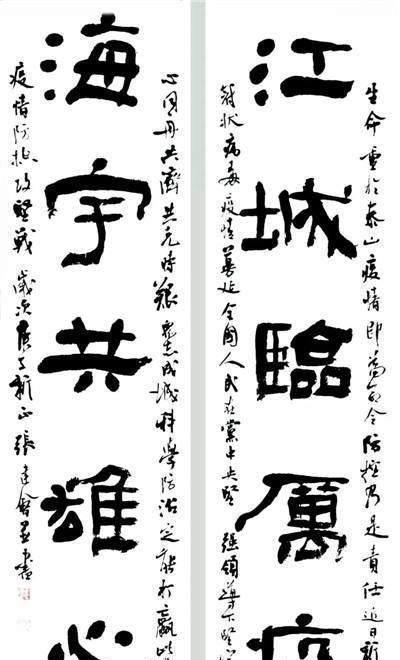 生命重於泰山疫情即為命令防控乃是責任近日新
江城臨厲疫
冠狀病毒疫情蔓延全國人民在黨中央堅強領導下堅
心同舟共濟共克時艱眾志成城科學防治定能打贏此
海宇共雄心
疫情防控攻堅戰 歲次庚子新正張